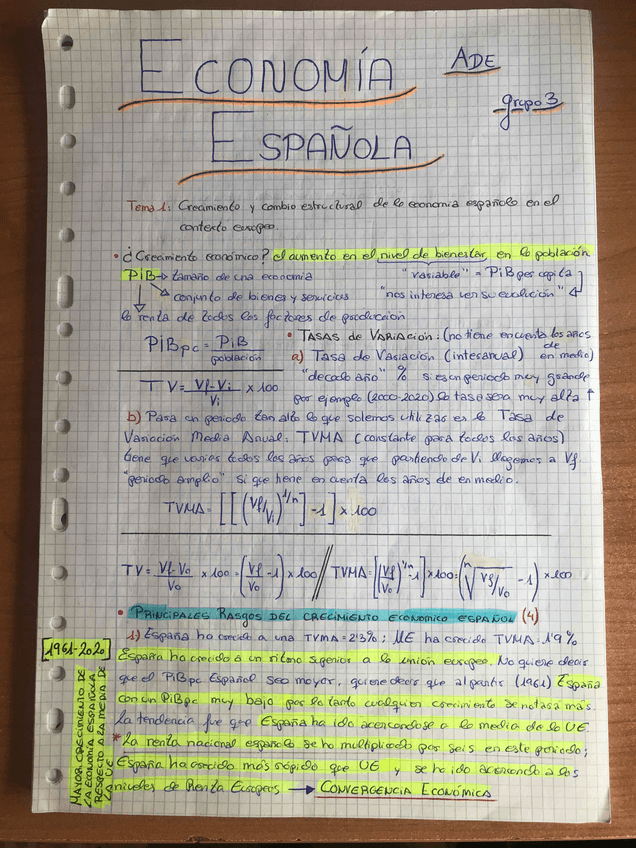 ECONOMÍA
ADE
grupo 3
ESPAÑOLA
Tema 1: Crecimiento y cambio estructural de la economía española en el
contexto europeo.
• ¿Crecimiento económico? el aumento en el nivel de bienestar, en la población
PiB → tamaño de una economía
"variable" = PiB per capita
↘ conjunto de bienes y servicios
"nos interesa ver su evolución" ↵
la renta de todos los factores de producción
PiBpc = PiB / población
• TASAS DE VARIACIÓN: (no tiene en cuenta los años de en medio)
a) Tasa de Variación (interanual)
"de cada año" % si es un periodo muy grande
TV = Vf - Vi / Vi x 100
por ejemplo (2000-2020) la tasa sera muy alta ↑
b) Para un periodo tan alto lo que solemos utilizar es la Tasa de
Variación Media Anual: TVMA (constante para todos los años)
tiene que variar todos los años para que partiendo de Vi llegemos a Vf
"periodo amplio" si que tiene en cuenta los años de en medio.
TVMA = [[(Vf/Vi)^1/n] - 1] x 100
TV = Vf - Vo / Vo x 100 = (Vf / Vo - 1) x 100 // TVMA = [(Vf / Vo)^1/n - 1] x 100 = (ⁿ√Vf/Vo - 1) x 100
• PRINCIPALES RASGOS DEL CRECIMIENTO ECONOMICO ESPAÑOL (4)
1) España ha crecido a una TVMA = 2'3%; UE ha crecido TVMA = 1'9%
[1961-2020]
España ha crecido a un ritmo superior a la union europea. No quiere decir
que el PiBpc Español sea mayor, quiere decir que al partir (1961) España
con un PiBpc muy bajo por lo tanto cualquier crecimiento se notará más.
La tendencia fue que España ha ido acercandose a la media de la UE.
* La renta nacional española se ha multiplicado por seis en este periodo;
España ha crecido más rápido que UE y se ha ido acercando a los
niveles de Renta Europeos → CONVERGENCIA ECONÓMICA
MAYOR CRECIMIENTO DE
LA ECONOMÍA ESPAÑOLA
RESPECTO A LA MEDIA DE
LA UE